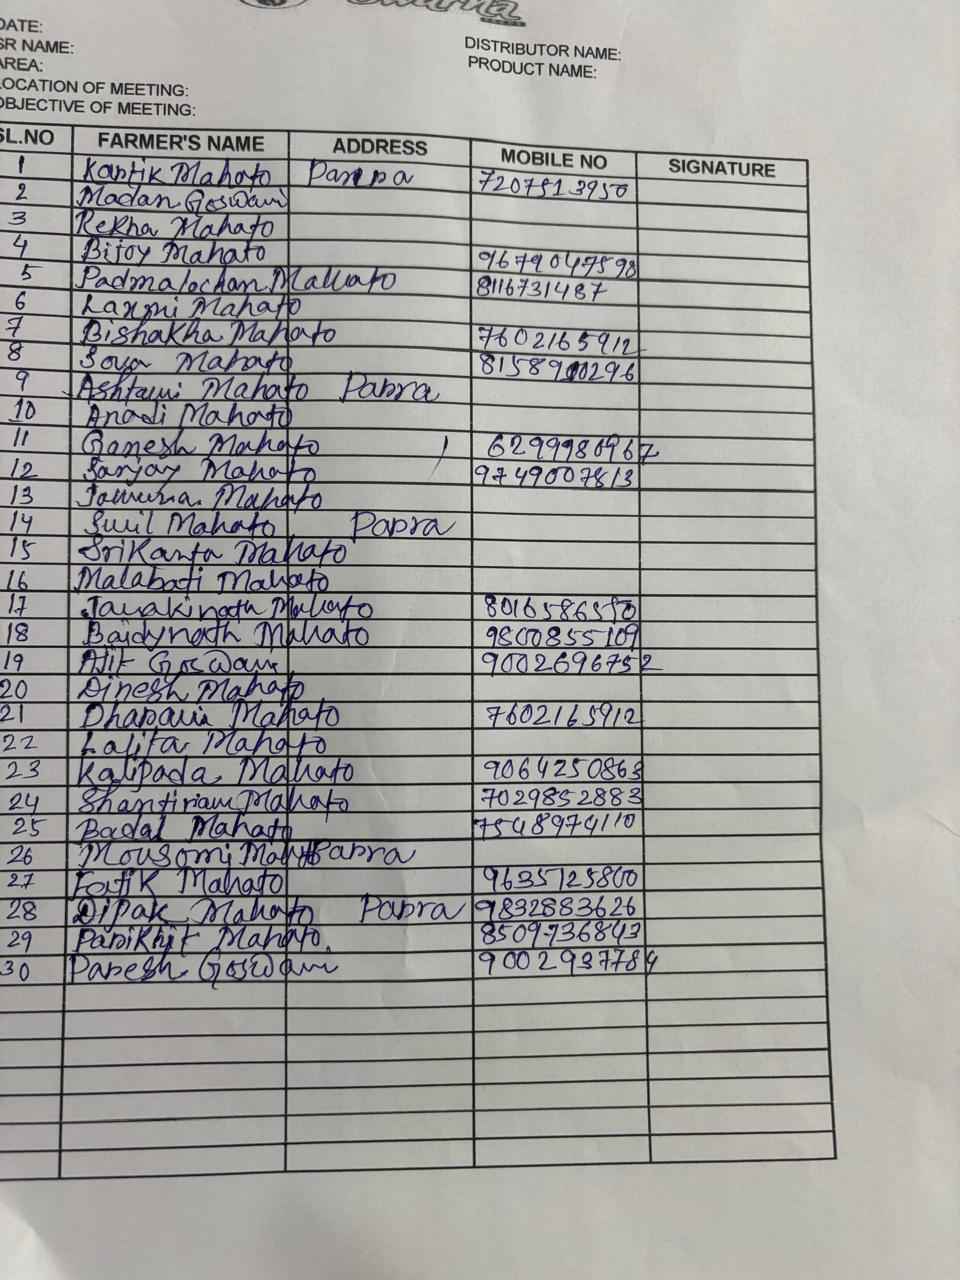 Swarna
DATE:
SR NAME:
DISTRIBUTOR NAME:
AREA:
PRODUCT NAME:
LOCATION OF MEETING:
OBJECTIVE OF MEETING:
SL.NO FARMER'S NAME ADDRESS MOBILE NO SIGNATURE
1 Kartik Mahato Parpa 7207513950
2 Madan Goswami
3 Rekha Mahato
4 Bijoy Mahato 9679047598
5 Padmalochan Mahato 8116731487
6 Laxmi Mahato
7 Bishakha Mahato 7602165912
8 Soya Mahato 8158900296
9 Ashtami Mahato Papra
10 Anadi Mahato
11 Ganesh Mahato 6299980967
12 Sanjay Mahato 9749007813
13 Jamuna Mahato
14 Sunil Mahato Papra
15 Srikanta Mahato
16 Malabati Mahato
17 Janakinath Mahato 8016586550
18 Baidynath Mahato 9800855109
19 Ajit Goswami 9002696752
20 Dinesh Mahato
21 Dharani Mahato 7602165912
22 Lalita Mahato
23 Kalipada Mahato 9064250863
24 Shantiram Mahato 7029852883
25 Badal Mahato 7548974110
26 Mousomi Mahato Papra
27 Fatik Mahato 9635725800
28 Dipak Mahato Papra 9832883626
29 Parikhit Mahato 8509736843
30 Paresh Goswami 9002937784